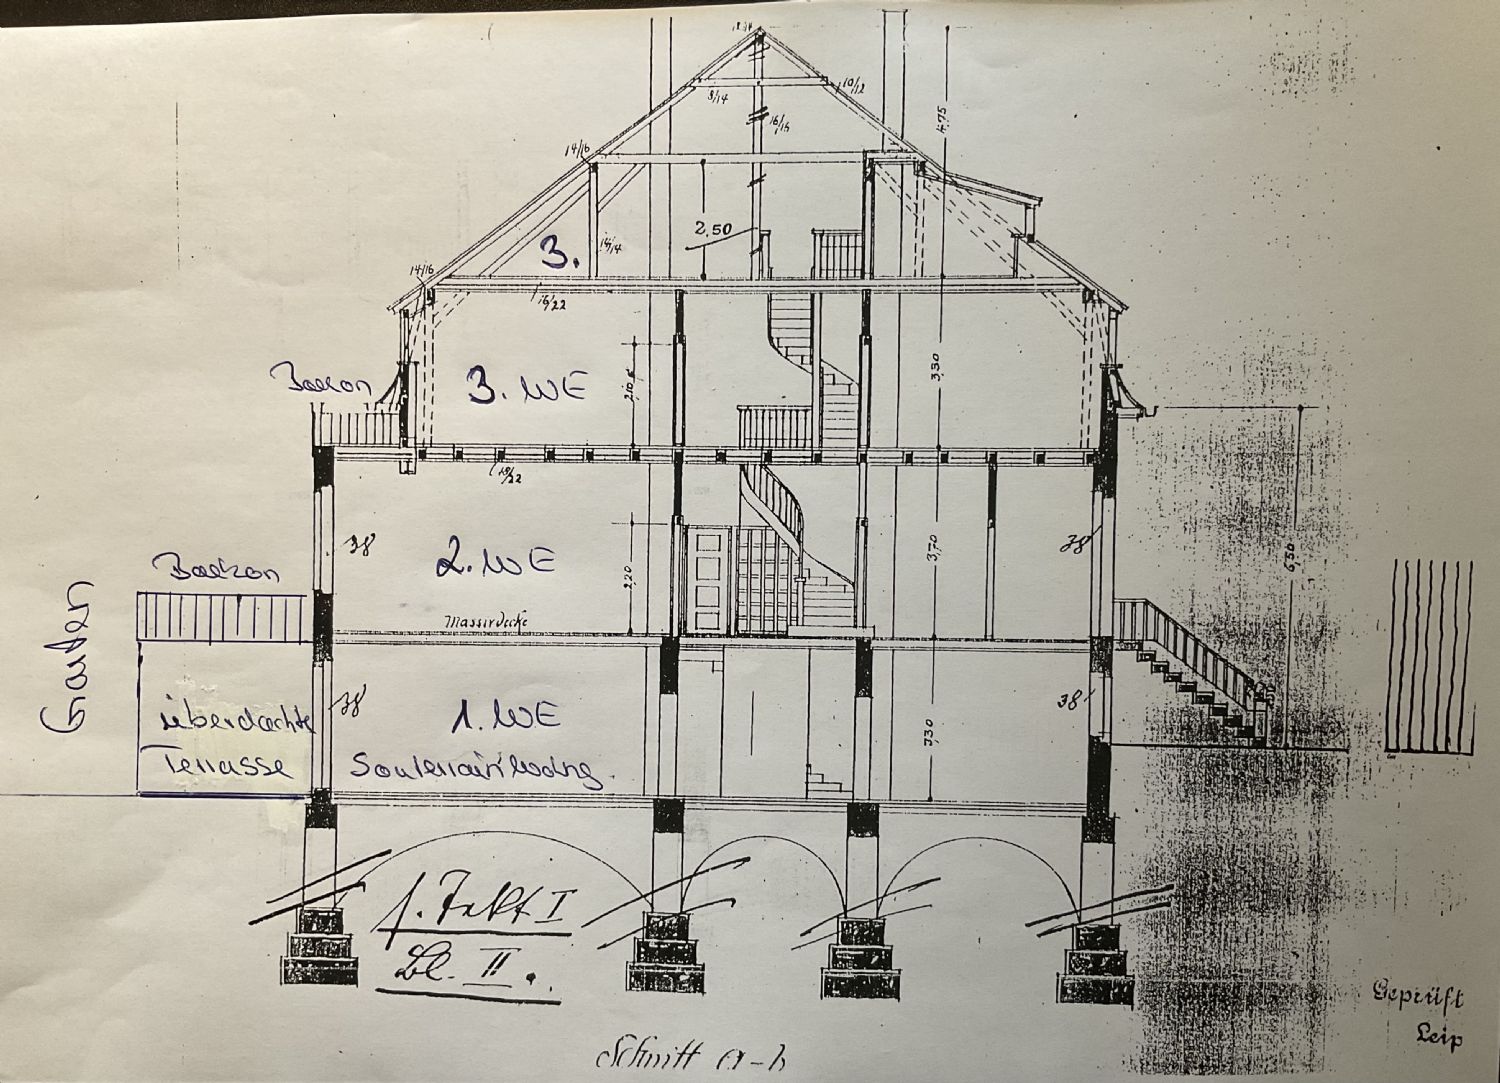 14/16
8/14
10/12
16/16
4,75
14/16
2,50
3.
14/14
14/16
16/22
Balkon
3. WE
2,10
3,50
18/22
38
2. WE
38
Balkon
2,20
3,70
6,50
Massivdecke
Garten
überdachte
Terrasse
38
1. WE
Souterrainwohng.
3,30
38
Bl. II.
Schnitt a-b
Geprüft
Leip